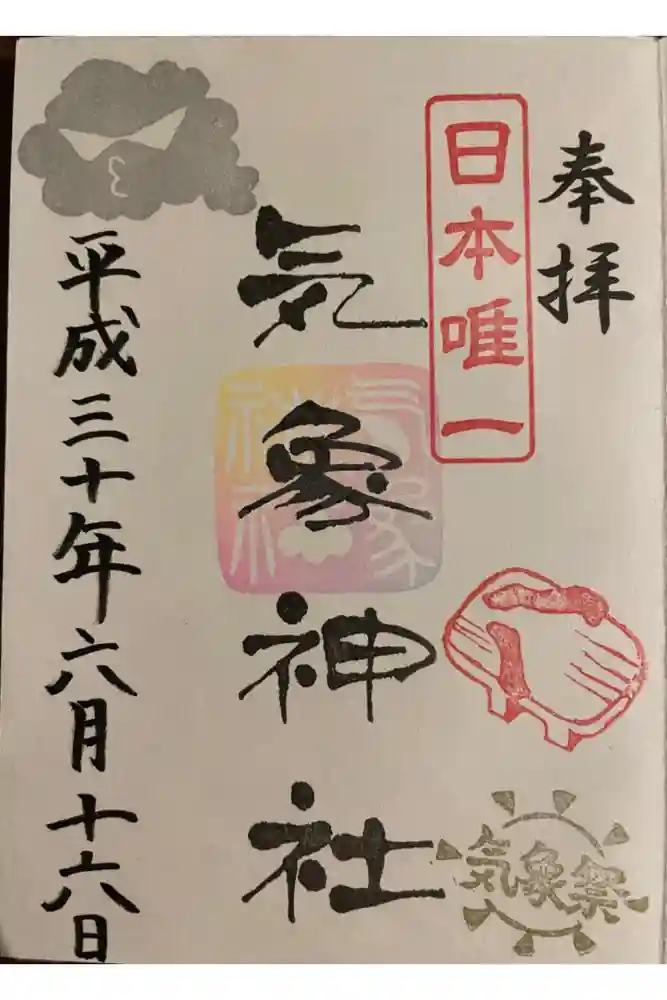 奉拝
日本唯一
気象祭
気象神社
気象神社
平成三十年六月十六日